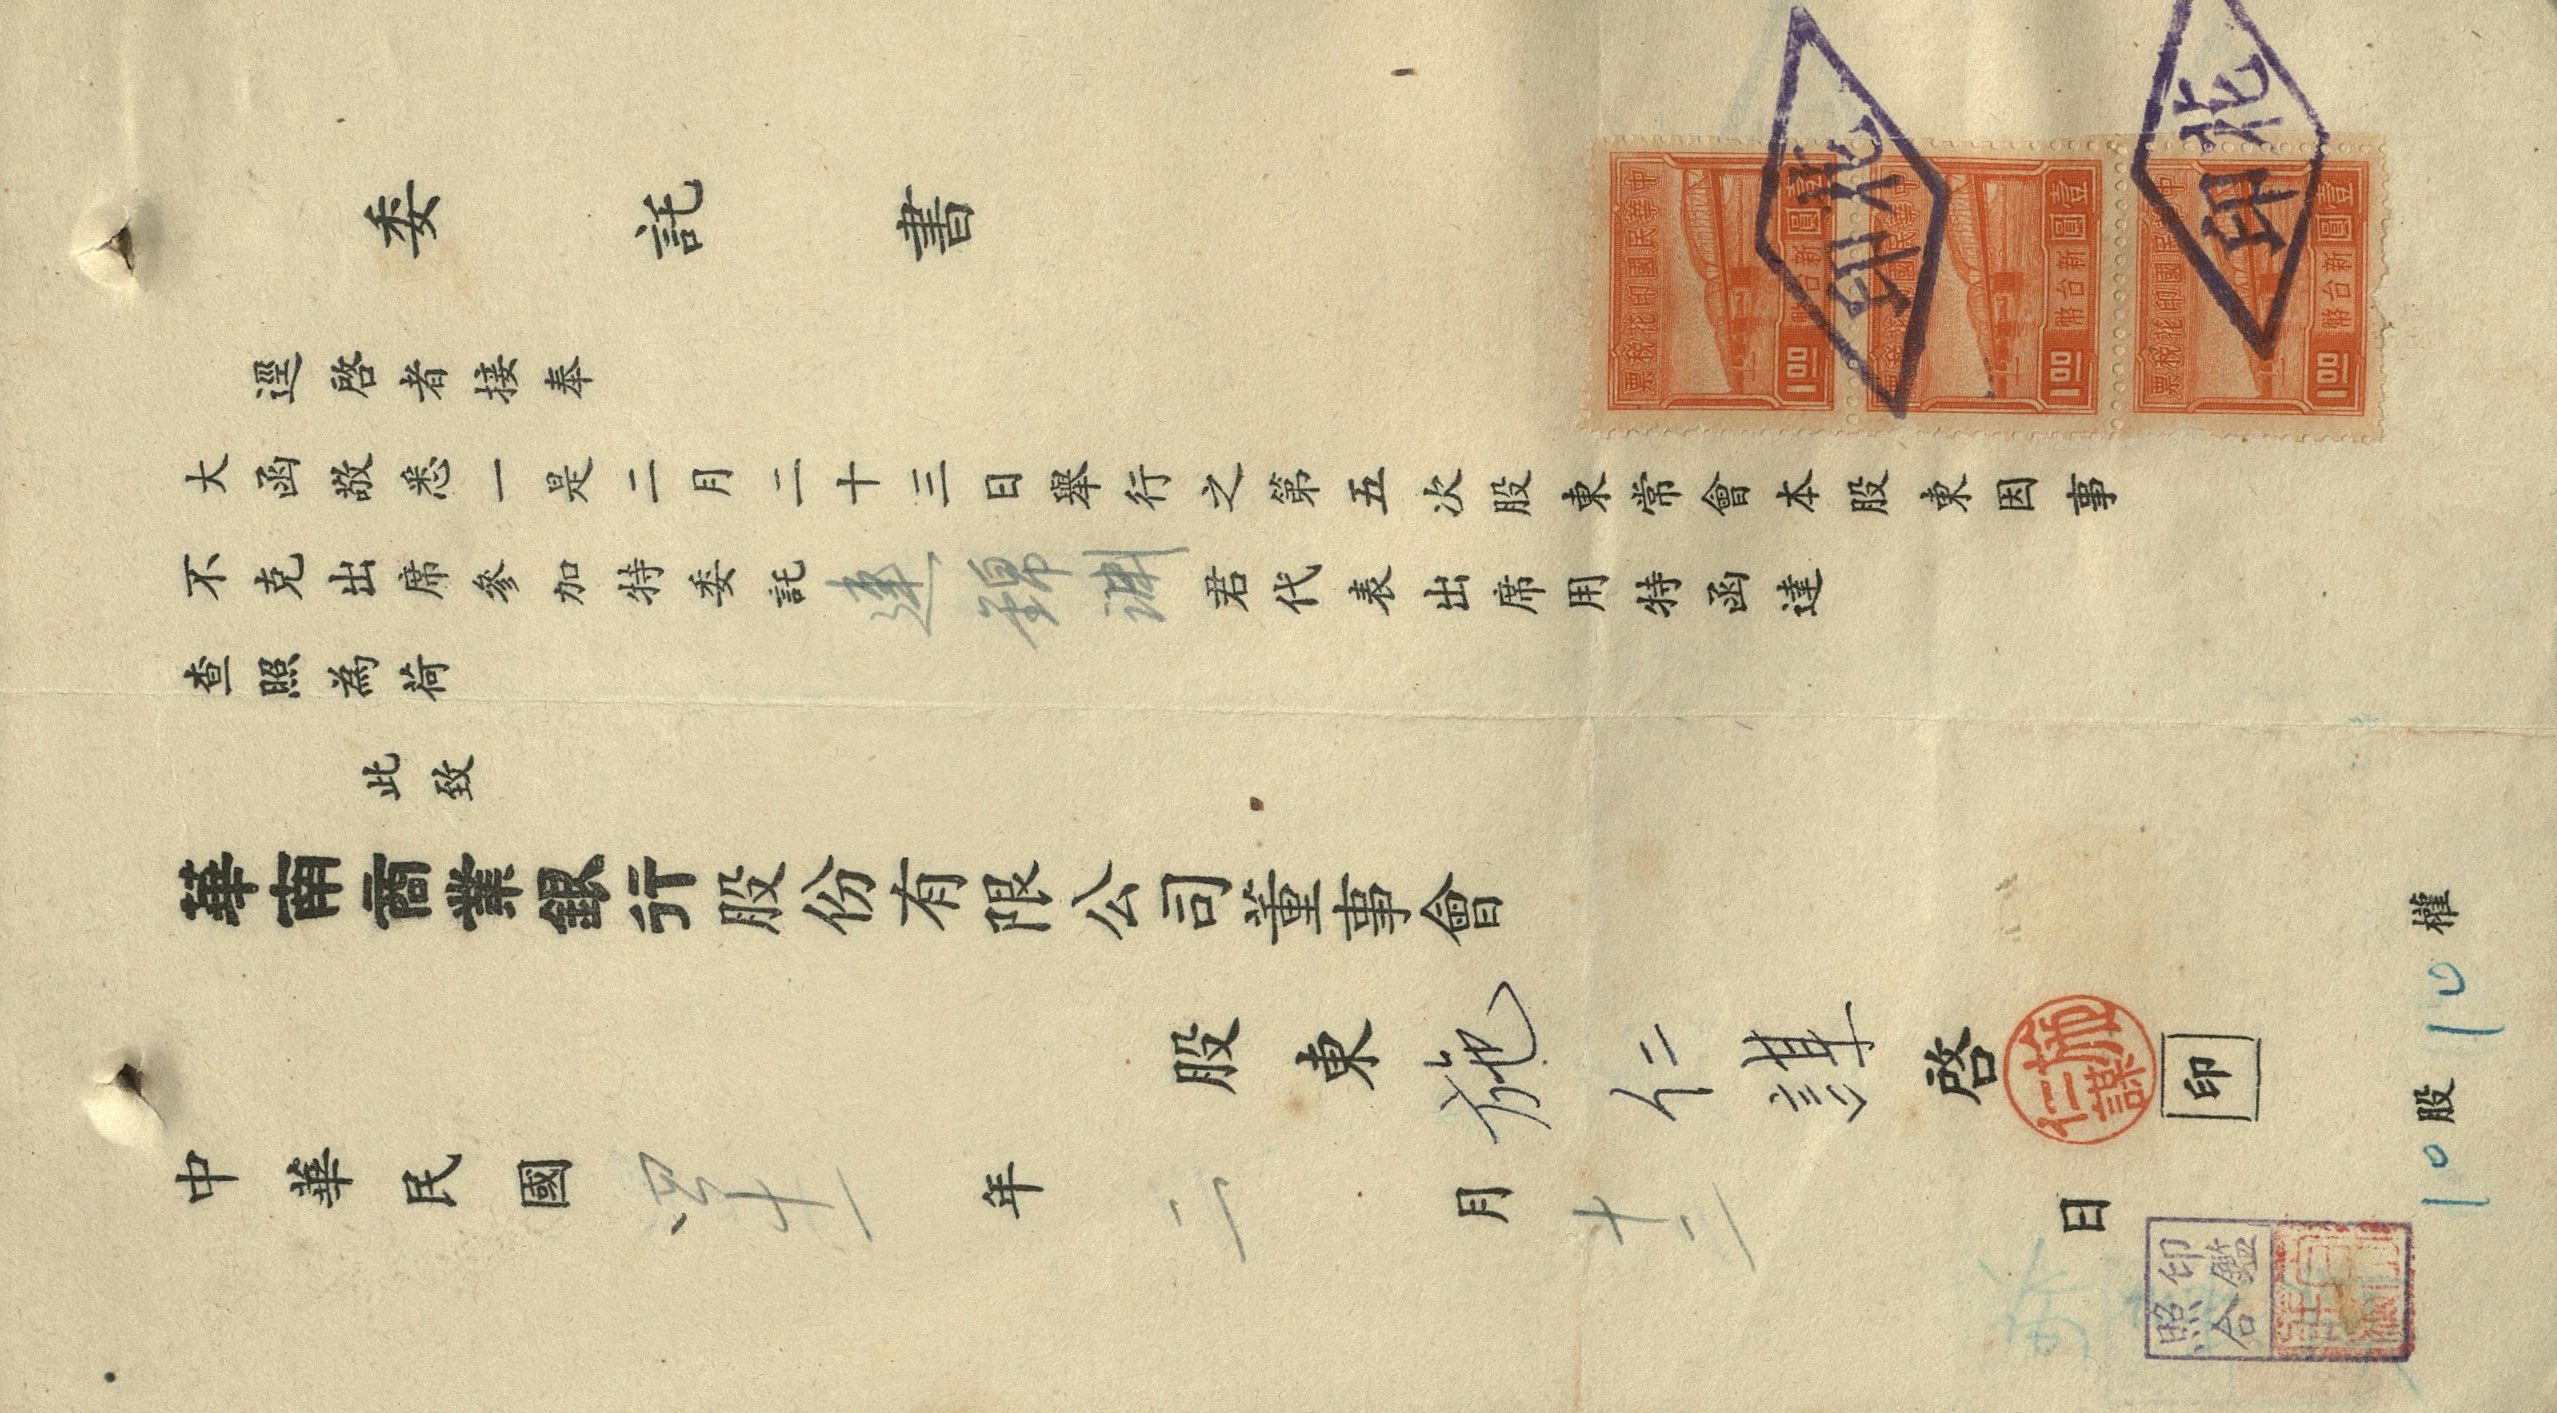 委託書
逕啓者接奉
大函敬悉一是二月二十三日舉行之第五次股東常會本股東因事
不克出席參加特委託連錦 君代表出席用特函達
查照為荷
此致
華南商業銀行股份有限公司董事會
股東施仁謀啓
施仁謀
印
中華民國四十一年二月十二日
10股10權
印鑑
照合
中華民國印花稅票
壹圓
新台幣
1.00
中華民國印花稅票
壹圓
新台幣
1.00
中華民國印花稅票
壹圓
新台幣
1.00
印花
印花